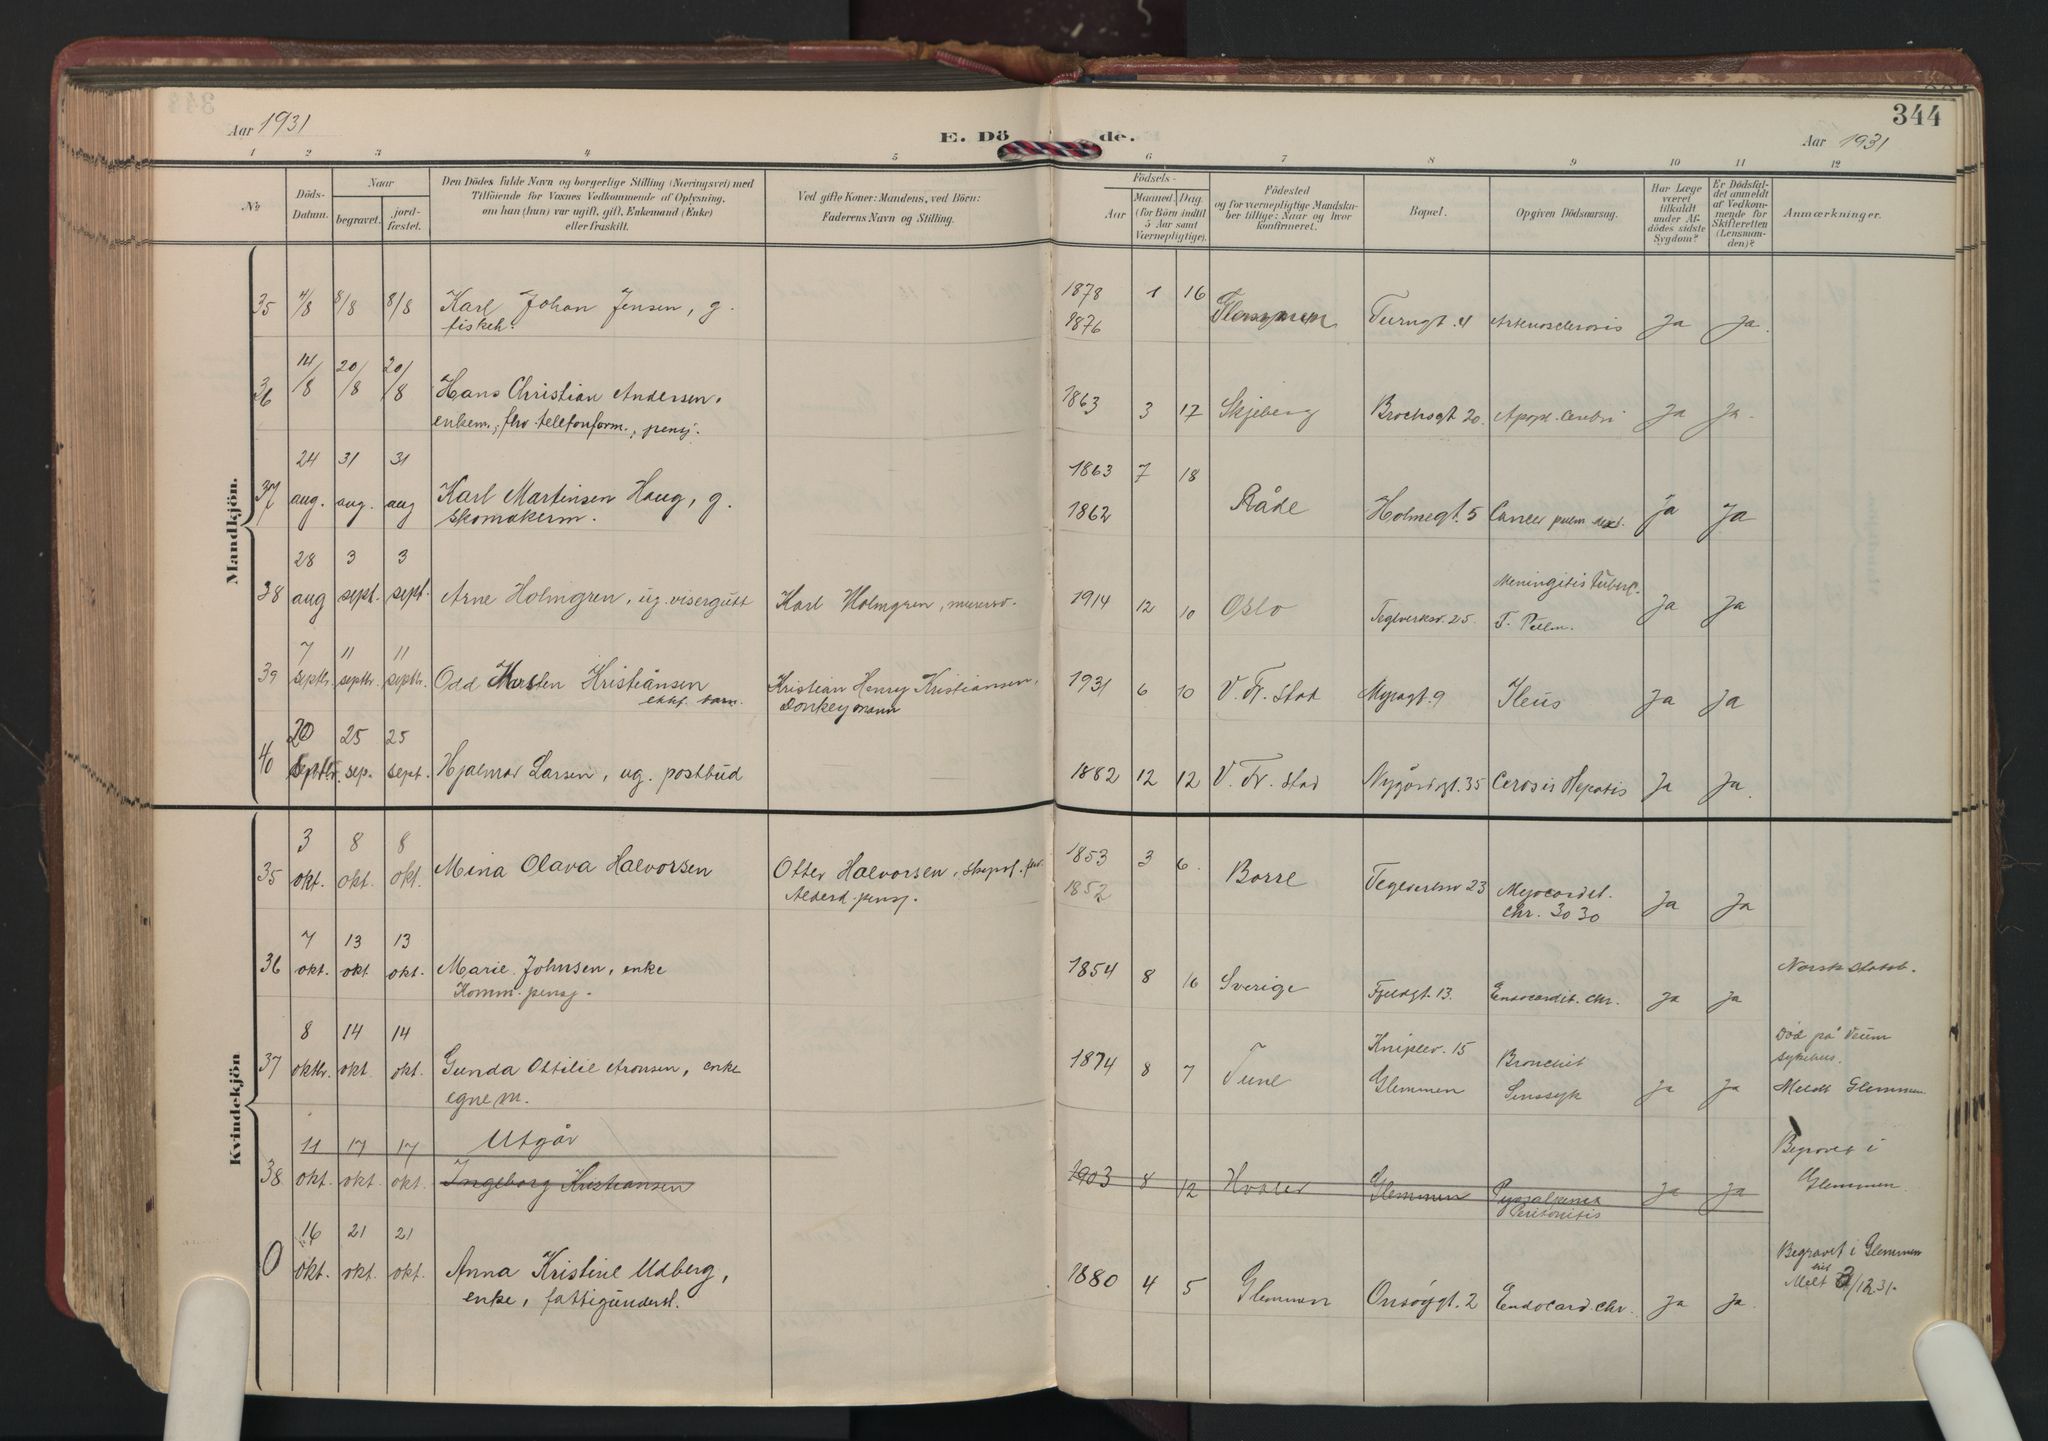 Aar 1931
E. Dö de.
344
Aar 1931
1 2 3 4 5 6 7 8 9 10 11 12
No
Döds-
Datum.
Naar
begravet.
jord-
fæstet.
Den Dödes fulde Navn og borgerlige Stilling (Næringsvei) med
Tilföiende for Voxnes Vedkommende af Oplysning,
om han (hun) var ugift, gift, Enkemand (Enke)
eller fraskilt.
Ved gifte Koner: Mandens, ved Börn:
Faderens Navn og Stilling.
Födsels-
Aar
Maaned
Dag
(for Börn indtil
5 Aar samt
Værnepligtige).
Födested
og for værnepligtige Mandska-
ber tillige: Naar og hvor
konfirmeret.
Bopæl.
Opgiven Dödsaarsag.
Har Læge
været
tilkaldt
under Af-
dödes sidste
Sygdom?
Er Dödsfal-
det anmeldt
af Vedkom-
mende for
Skifteretten
(Lensman-
den)?
Anmærkninger.
Mandkjön.
35 4/8 8/8 8/8 Karl Johan Jensen, g. 1878 1 16
fiskeh. 1876 Turngt. 4 Arteriosclerosis Ja Ja.
36 14/8 20/8 20/8 Hans Christian Andersen. 1863 3 17 Skjeberg Brochsgt 20. Apopl. Cerebri Ja Ja.
enkem., fhv. telefonform., pensj.
24 31 31 1863 7 18
37 aug. aug. aug Karl Martinsen Haug, g. Råde Holmegt. 5 Cancer pulm. Ja Ja
skomakerm. 1862
28 3 3 Meningitis Tuberc.
38 aug sept. sept. Arne Holmgren, ug. visergutt Karl Holmgren, murersv. 1914 12 10 Oslo Teglverksv. 25. T. Pulm. Ja Ja
7 11 11
39 septbr. septbr. septbr. Odd Kristiansen Kristian Henry Kristiansen, 1931 6 10 V. Fr. stad Myragt. 9 Ileus Ja Ja
ekt. barn. Donkeymann
20 25 25
40 septbr. sep. sept. Hjalmar Larsen, ug. postbud 1882 12 12 V. Fr. stad Nygårdsgt. 35 Cerosis Hepatis Ja Ja.
Kvindekjön
3 8 8 1853 3 6
35 okt. okt. okt. Mina Olava Halvorsen Otter Halvorsen, 1852 Borre Teglverksv 23 Myocardit. Ja Ja
Alderd. pensj. chr. 30 30
7 13 13 Norsk statsb.
36 okt. okt okt. Marie Johnsen, enke 1854 8 16 Sverige Fjeldgt. 13. Endocardit. chr. Ja Ja
Komm. pensj.
8 14 14 Kniplev. 15 Død på Veum
37 oktbr. okt. okt. Gunda Ottilie Aronsen, enke 1874 8 7 Tune Glemmen Bronchit Ja Ja sykehus.
egne m. Sinssyk Meldt Glemmen
11 17 17 Utgår
38 okt. okt. okt. Ingeborg Kristiansen 1903 8 12 Hvaler Glemmen Pyosalpinx Ja Ja Begravet i
Peritonitis Glemmen.
16 21 21 Begravet i Glemmen
0 okt. okt. okt. Anna Kristine Udberg, 1880 4 5 Glemmen Onsøygt. 2 Endocard. chr. Ja Ja. Melt 2/12 31.
enke, fattigunderst.